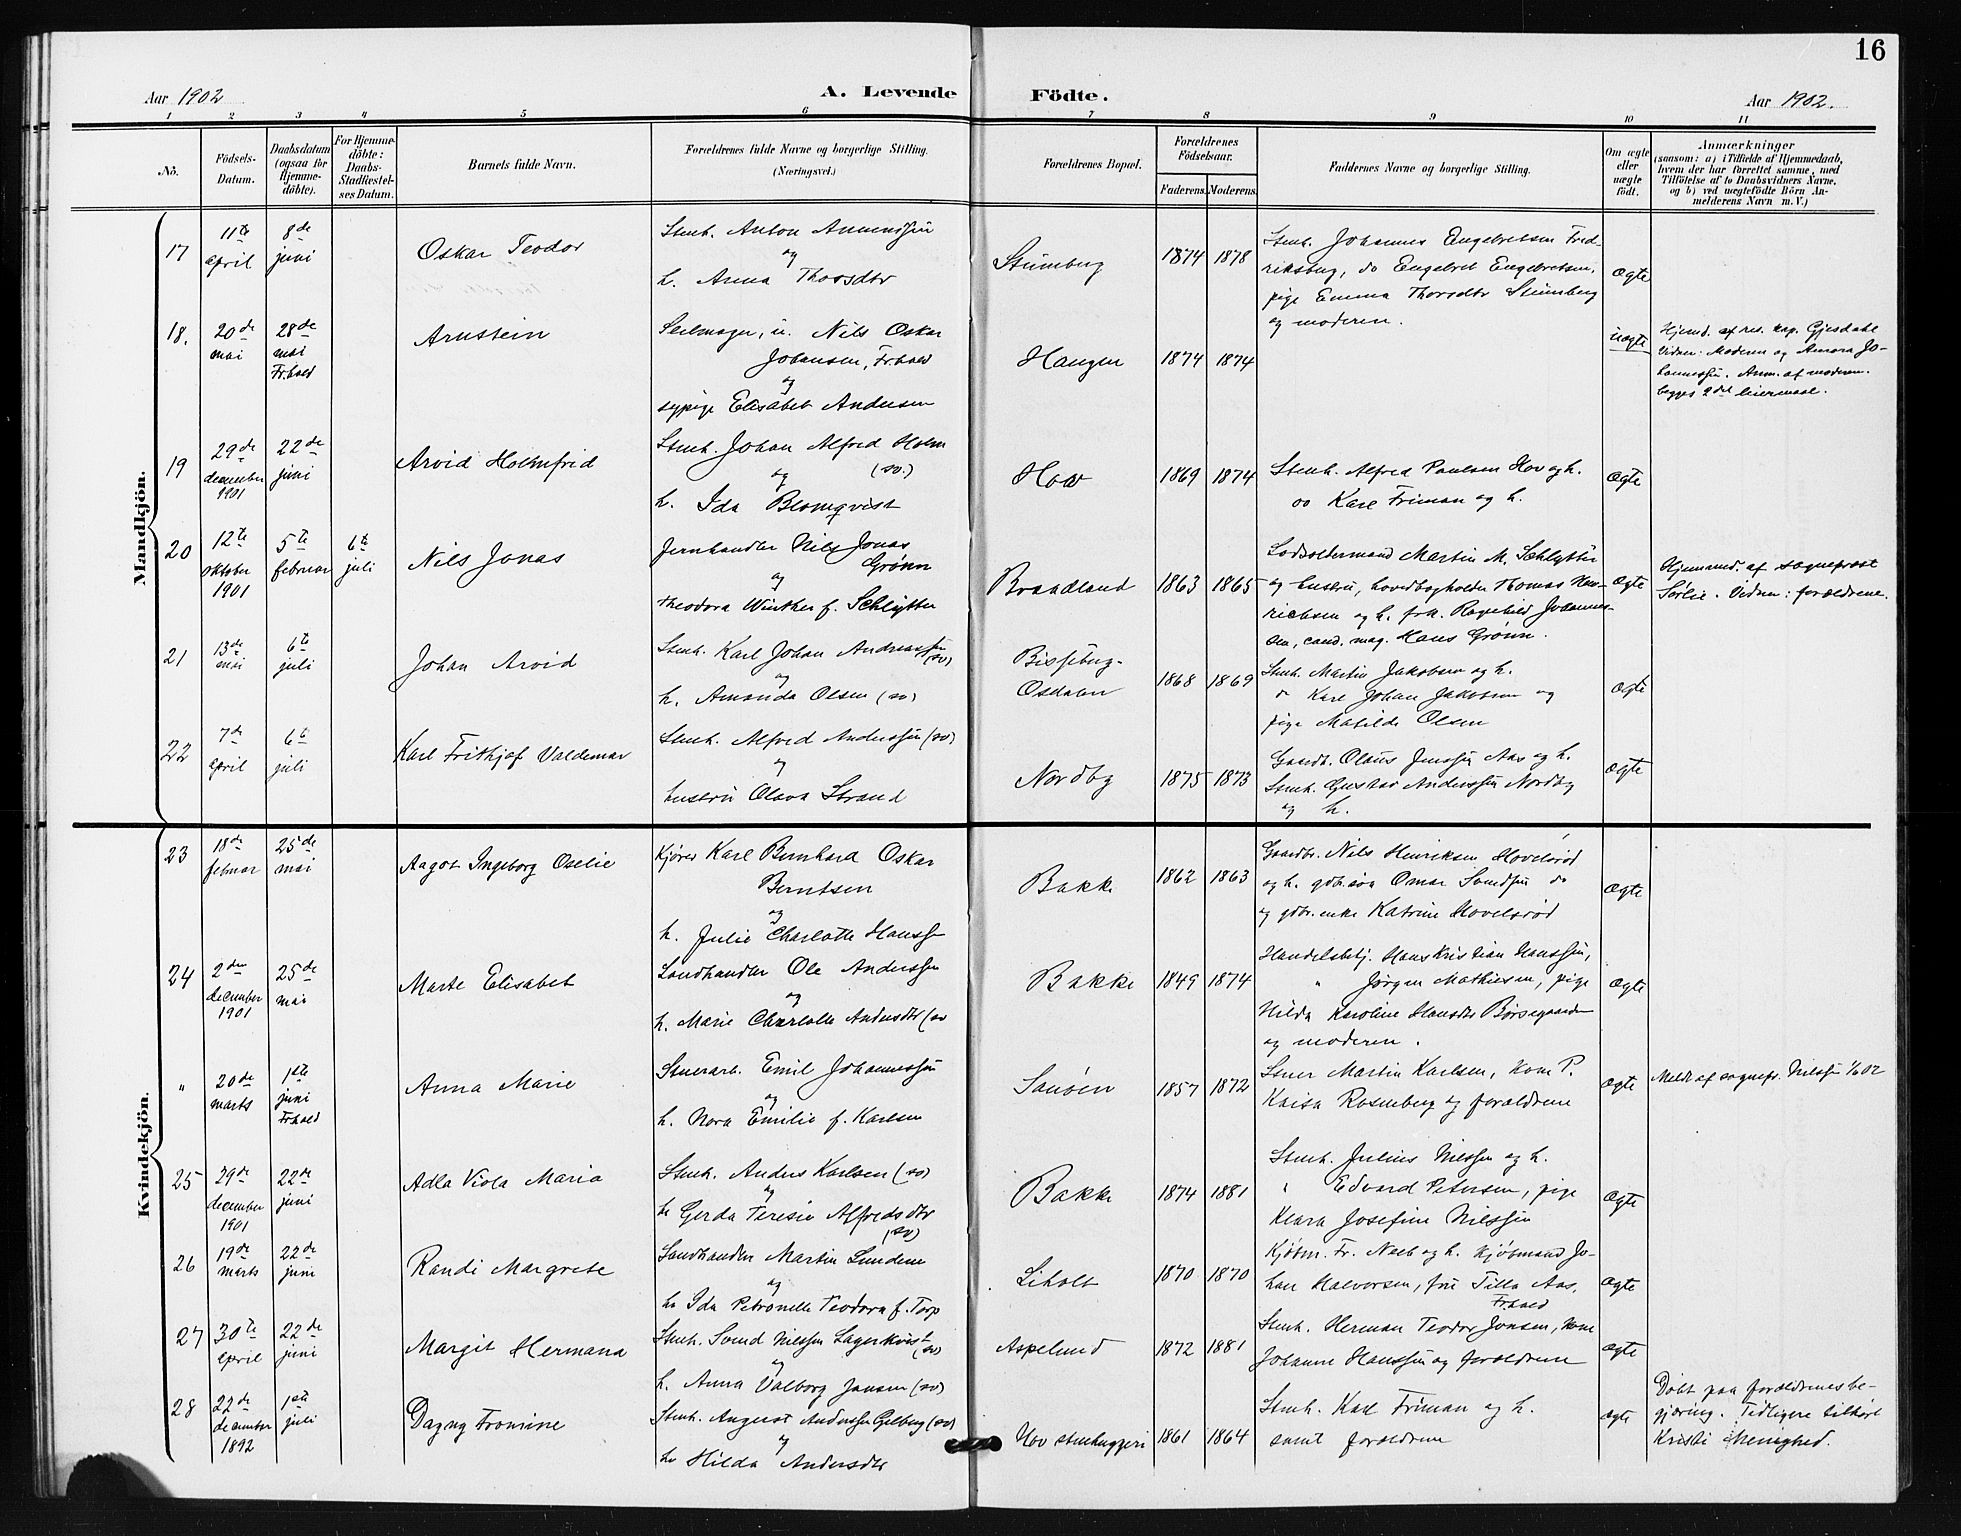 16
Aar 1902
A. Levende Födte.
Aar 1902.
1 2 3 4 5 6 7 8 9 10 11
No.
Födsels-Datum.
Daabsdatum (ogsaa for Hjemme-döbte).
For Hjemme-döbte: Daabs-Stadfæstel-ses Datum.
Barnets fulde Navn.
Forældrenes fulde Navne og borgerlige Stilling.
(Næringsvei.)
Forældrenes Bopæl.
Forældrenes Födselsaar.
Faderens. Moderens.
Faddernes Navne og borgerlige Stilling.
Om ægte eller uægte födt.
Anmærkninger
(saasom: a) i Tilfælde af Hjemmedaab,
hvem der har forrettet samme, med
Tilföielse af to Daabsvidners Navne,
og b) ved uægtefödte Börn An-
melderens Navn m. V.)
Mandkjön.
17
11te april
8de juni
Oskar Teodor
Stenh. Anton Anumssen
og
h. Anna Thorsdtr
Stumberg
1874 1878
Stenh. Johannes Engebretsen Fred-
riksberg, do Engebret Engebretsen,
pige Emma Thorsdtr Stumberg
og moderen.
ægte
18.
20de mai
28de mai Fr.hald
Arnstein
Seilmager, u. Nils Oskar
Johansen, Fr.hald
og
sypige Elisabet Andersen
Haugen
1874 1874
uægte
Hjemd. af res. kap. Gjesdahl
Vidner: Moderen og Aurora Jo-
hannessen. Anm. af moderen.
begges 2det leiermaal.
19
29de december 1901
22de juni
Arvid Holmfrid
Stenh. Johan Alfred Holm
og (sv.)
h. Ida Blomqvist
Hov
1869 1874
Stenh. Alfred Paulsen Hov og h.
do Karl Friman og h.
ægte
20
12te oktober 1901
5te februar
6te juli
Nils Jonas
Jernhandler Nils Jonas
Grönn
og
Theodora Winther f. Schlytter
Braadland
1863 1865
Lodsoldermand Martin M. Schlytter
og hustru, hovedbogholder Thomas Hen-
richsen og h. frk. Ragnhild Johannes-
en, cand. mag. Hans Grönn.
ægte
Hjemmed. af sogneprest
Sørlie. Vidner: forældrene.
21
13de mai
6te juli
Johan Arvid
Stenh. Karl Johan Andreassen
og (sv)
h. Amanda Olsen (sv)
Bisseberg-
Osdalen
1868 1869
Stenh. Martin Jakobsen og h.
do Karl Johan Jakobsen og
pige Matilde Olsen
ægte
22
7de april
6te juli
Karl Frithjof Valdemar
Stenh. Alfred Anderssen (sv)
og
hustru Olava Strand
Nordby
1875 1873
Gaardb. Olaus Jenssen Aas og h.
Stenh. Gustav Anderssen Nordby
og h.
ægte
Kvindekjön.
23
18de februar
25de mai
Aagot Ingeborg Oselie
Kjører Karl Bernhard Oskar
Berntsen
og
h. Julie Charlotte Hanss
Bakke
1862 1863
Gaardbr. Nils Henriksen Hovelsrød
og h. gdb.søn Omar Svendsen do
og gdbr.enke Katrine Hovelsrød
ægte
24
2den december 1901
25de mai
Marte Elisabet
Landhandler Ole Anderssen
og
h. Marie Charlotte Andersdtr (sv
Bakke
1849 1874
Handelsbetj. Hans Kristian Hanssen,
" Jørgen Mathiesen, pige
Hilda Karoline Hansdtr Börsegaarden
og moderen.
ægte
"
20de marts
1ste juni Fr.hald
Anna Marie
Stenarb. Emil Johannessen
og
h. Nora Emilie f. Karlsen
Sanöen
1857 1872
Stuer Martin Karlsen, kone P.
Kaisa Rosenberg og forældrene
ægte
Meldt af sognepr. Nilssen 1/6 02
25
29de december 1901
22de juni
Adla Viola Maria
Stenh. Anders Karlsen (sv)
og
h Gerda Teresie Alfredsdtr
(sv)
Bakke
1874 1881
Stenh. Julius Nilssen og h.
" Edvard Petersen, pige
Klara Josefine Nilssen
ægte
26
19de marts
22de juni
Randi Margrete
Landhandler Martin Lundene
og
h. Ida Petronelle Teodora f. Torp
Liholt
1870 1870
Kjøbm. Fr. Naeb og h. kjøbmand Jo-
han Halvorsen, fru Tilla Aas,
Fr.hald
ægte
27
30te april
22de juni
Margit Hermana
Stenh. Svend Nilssen Lagerkvist
og (sv)
h. Anna Valborg Jansen (sv)
Aspelund
1872 1881
Stenh. Herman Teodor Jonsen, kone
Johanne Hanssen og forældrene
ægte
28
22de december 1892
1ste juli
Dagny Fromine
Stenh. August Anderssen Gelberg (sv)
og
h. Hilda Andersdtr
Hov stenhuggeri
1861 1864
Stenh. Karl Friman og h.
samt forældrene
ægte
Döbt paa forældrenes be-
gjæring. Tidligere tilhört
Kristi Menighed.